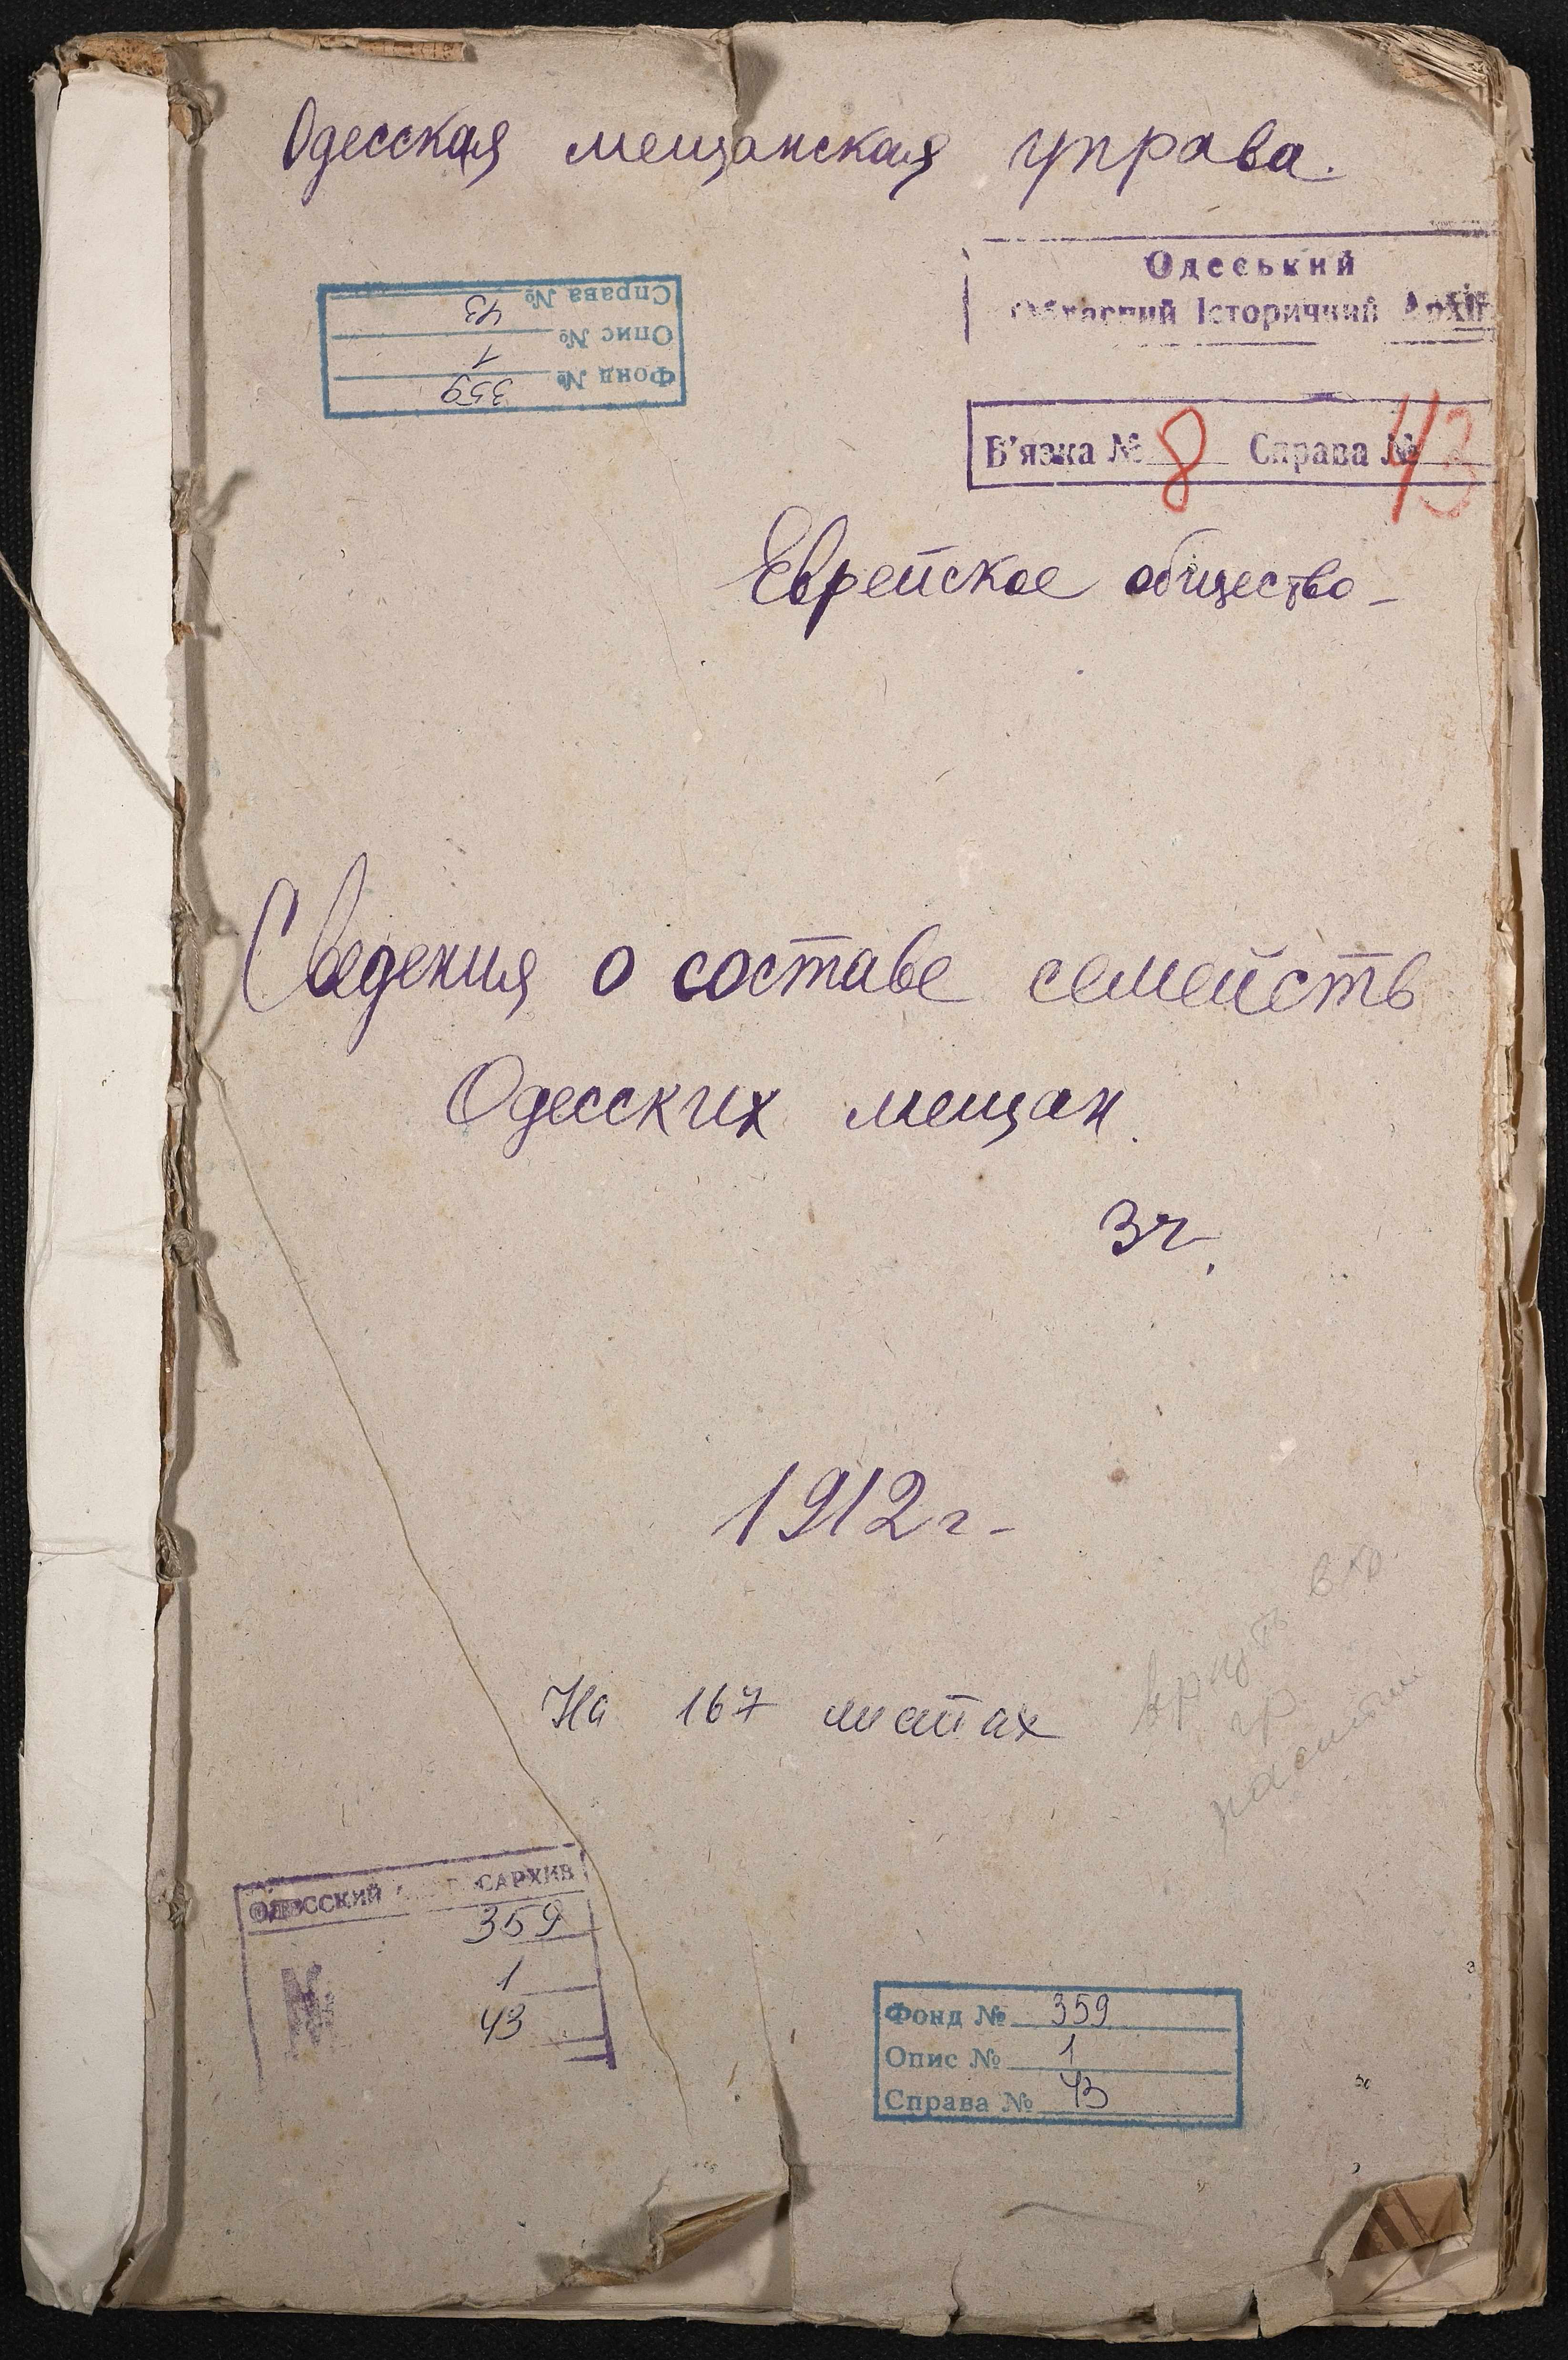 Одесская мещанская управа.
Одеський
Обласний Історичний Архів
Справа № 43
Опис № 1
Фонд № 359
В'язка № 8 Справа № 43
Еврейское общество
Сведения о составе семейств
Одесских мещан.
3 ч.
1912 г.
На 167 листах
ОДЕССКИЙ
359
1
43
Фонд № 359
Опис № 1
Справа № 43